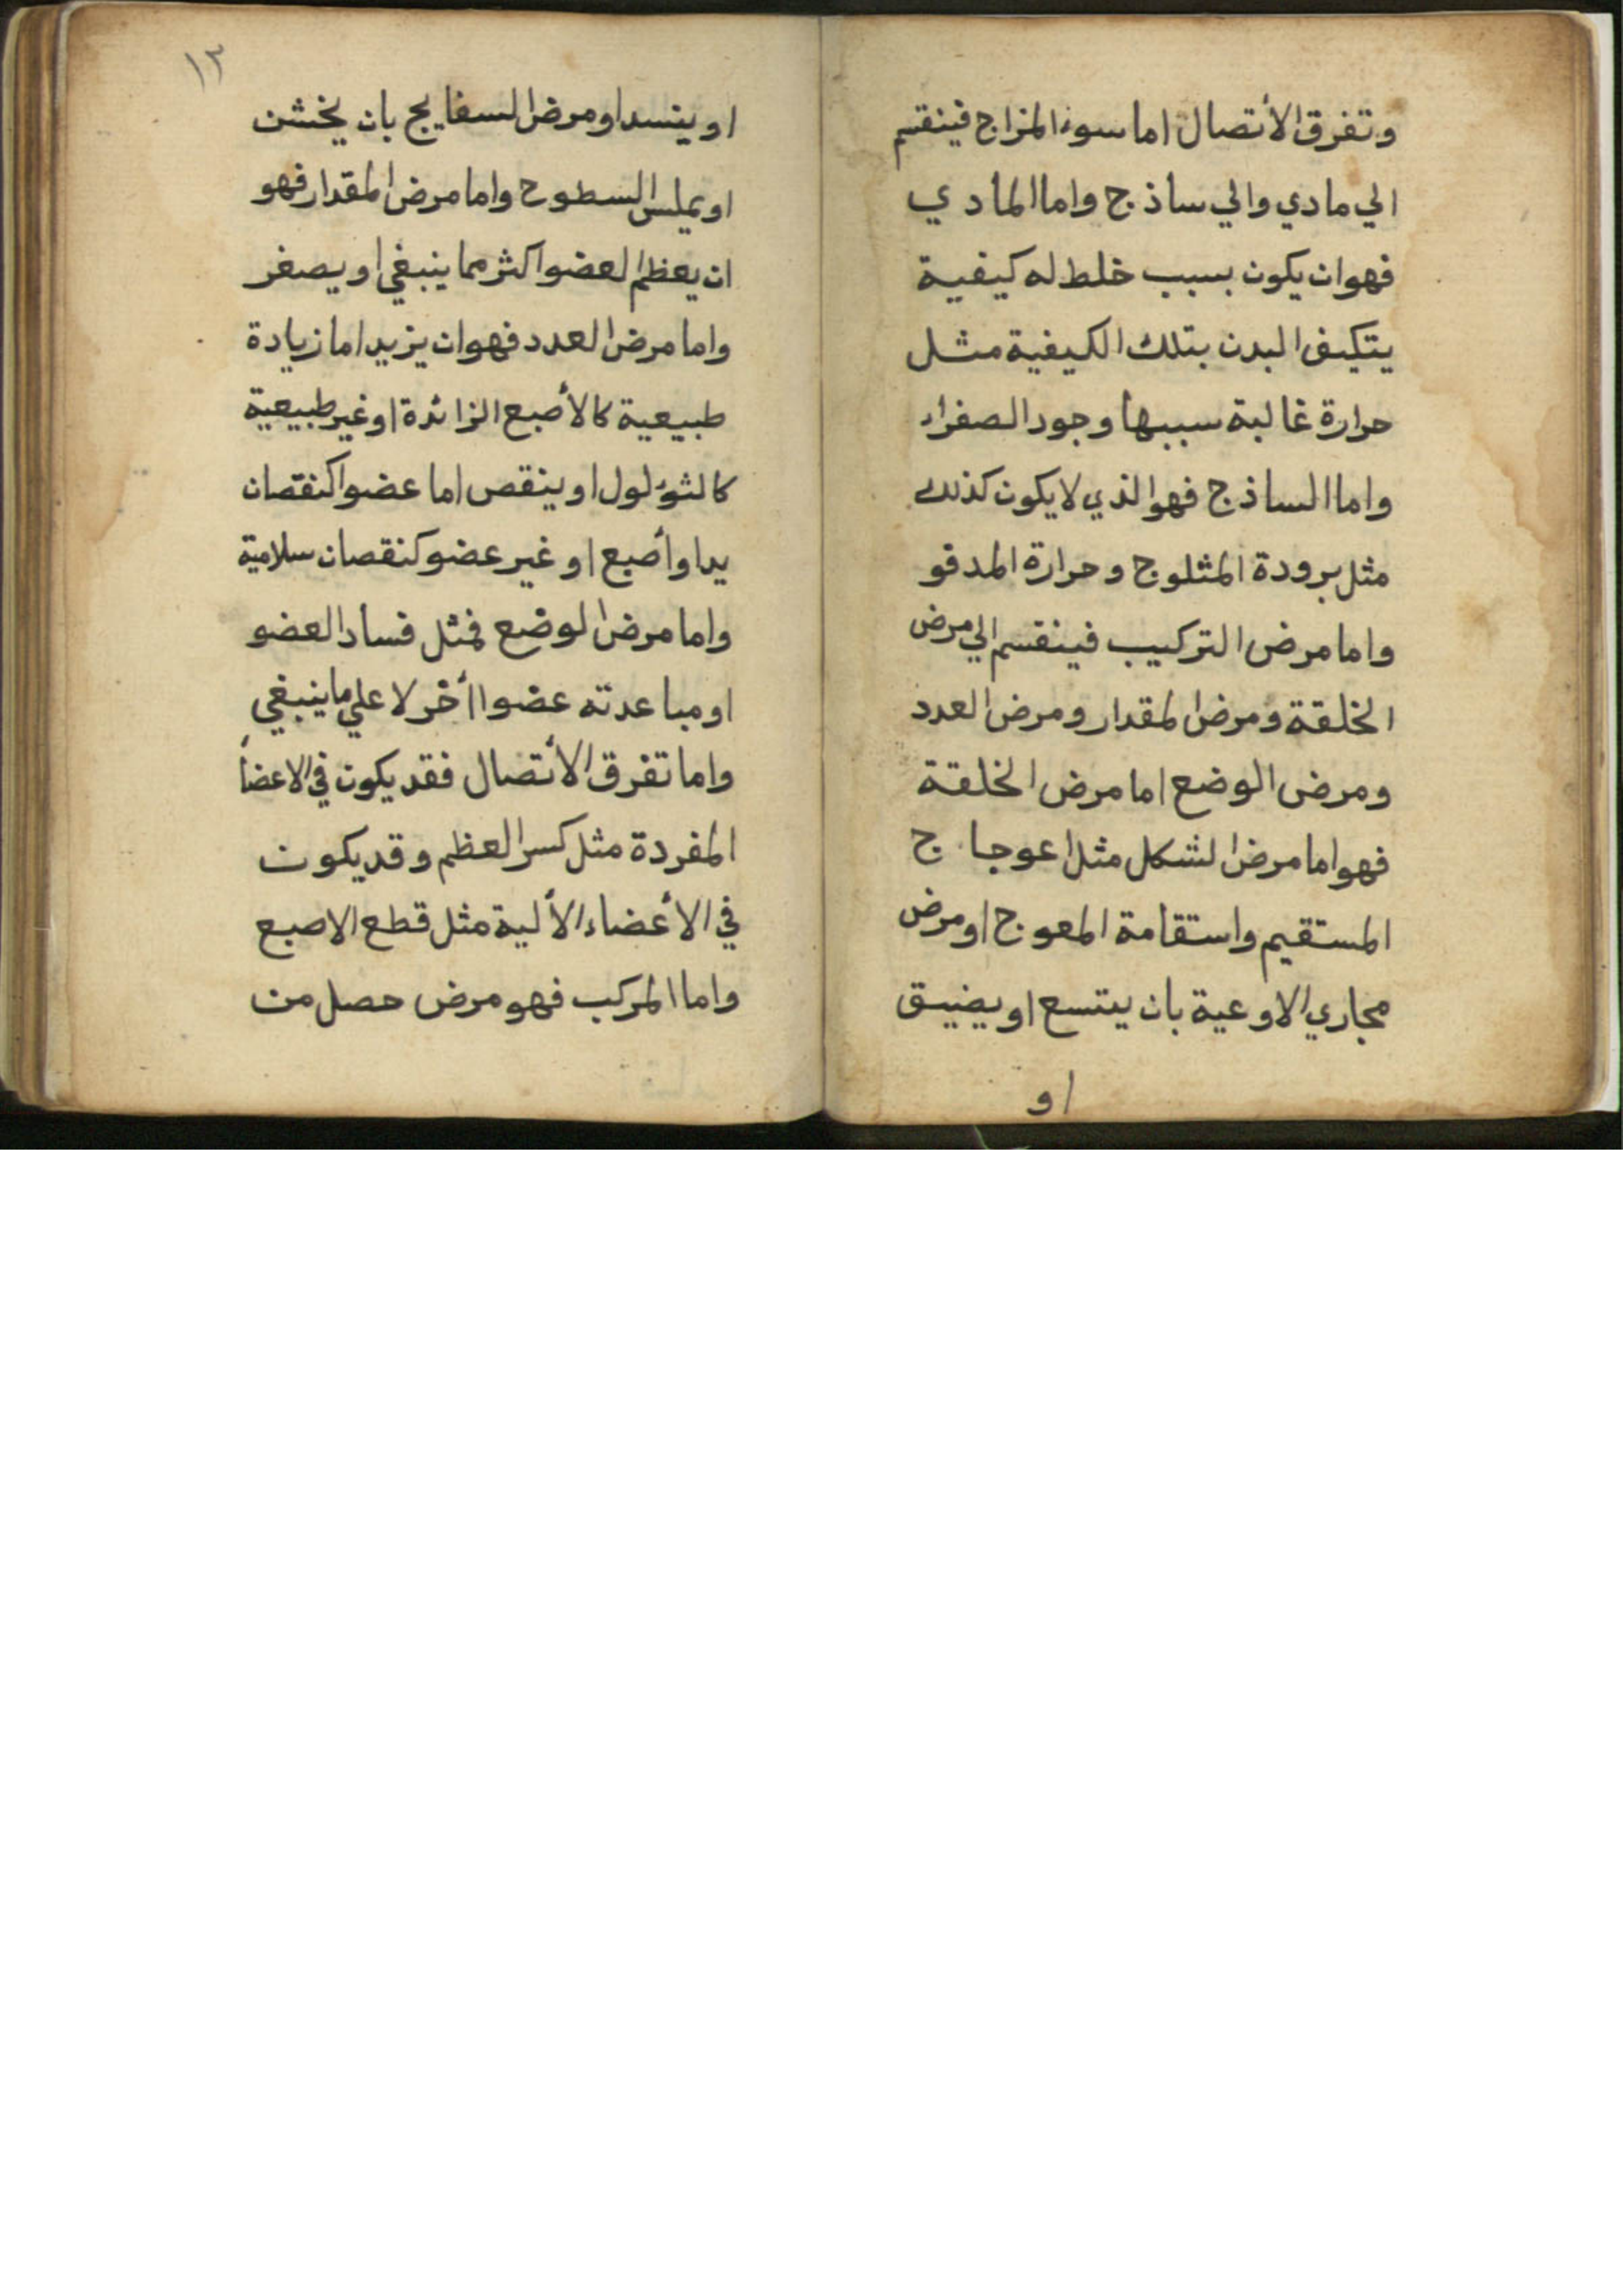 وتفرق الأتصال اما سوء المزاج فينقسم
الي مادي والي ساذج واما المادي
فهو ان يكون بسبب خلط له كيفية
يتكيف البدن بتلك الكيفية مثل
حرارة غالبة سببها وجود الصفراء
واما الساذج فهو الذي لا يكون كذلك
مثل برودة المثلوج وحرارة المدقو
واما مرض التركيب فينقسم الي مرض
الخلقة ومرض المقدار ومرض العدد
ومرض الوضع اما مرض الخلقة
فهو اما مرض الشكل مثل اعوجاج
المستقيم واستقامة المعوج او مرض
مجاري الاوعية بان يتسع او يضيق
او
١٣
او ينسد او مرض السفايج بان يخشن
او يملس السطوح واما مرض المقدار فهو
ان يعظم العضو اكثر مما ينبغي او يصغر
واما مرض العدد فهو ان يزيد اما زيادة
طبيعية كالأصبع الزائدة او غير طبيعية
كالثؤلول او ينقص اما عضوا كنقصان
يد او أصبع او غير عضو كنقصان سلامية
واما مرض الوضع فمثل فساد العضو
او مباعدته عضوا أخر لا علي ما ينبغي
واما تفرق الأتصال فقد يكون في الاعضأ
المفردة مثل كسر العظم وقد يكون
في الأعضاء الألية مثل قطع الاصبع
واما المركب فهو مرض حصل من